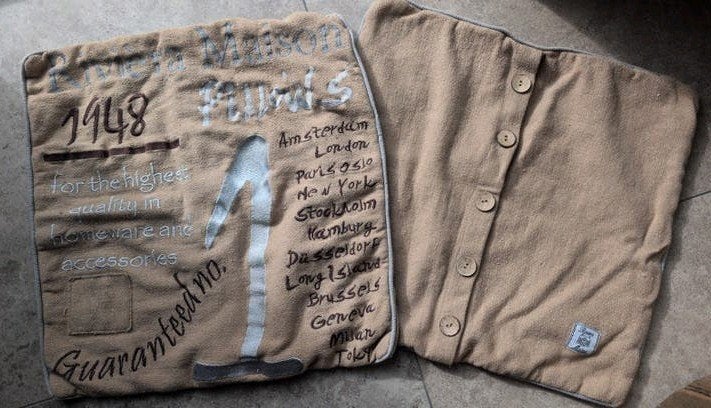 Riviera Maison
1948
for the highest
quality in
homeware and
accessories
1
Guaranteed no.
Amsterdam
London
Paris Oslo
New York
Stockholm
Hamburg
Düsseldorf
Long Island
Brussels
Geneva
Milan